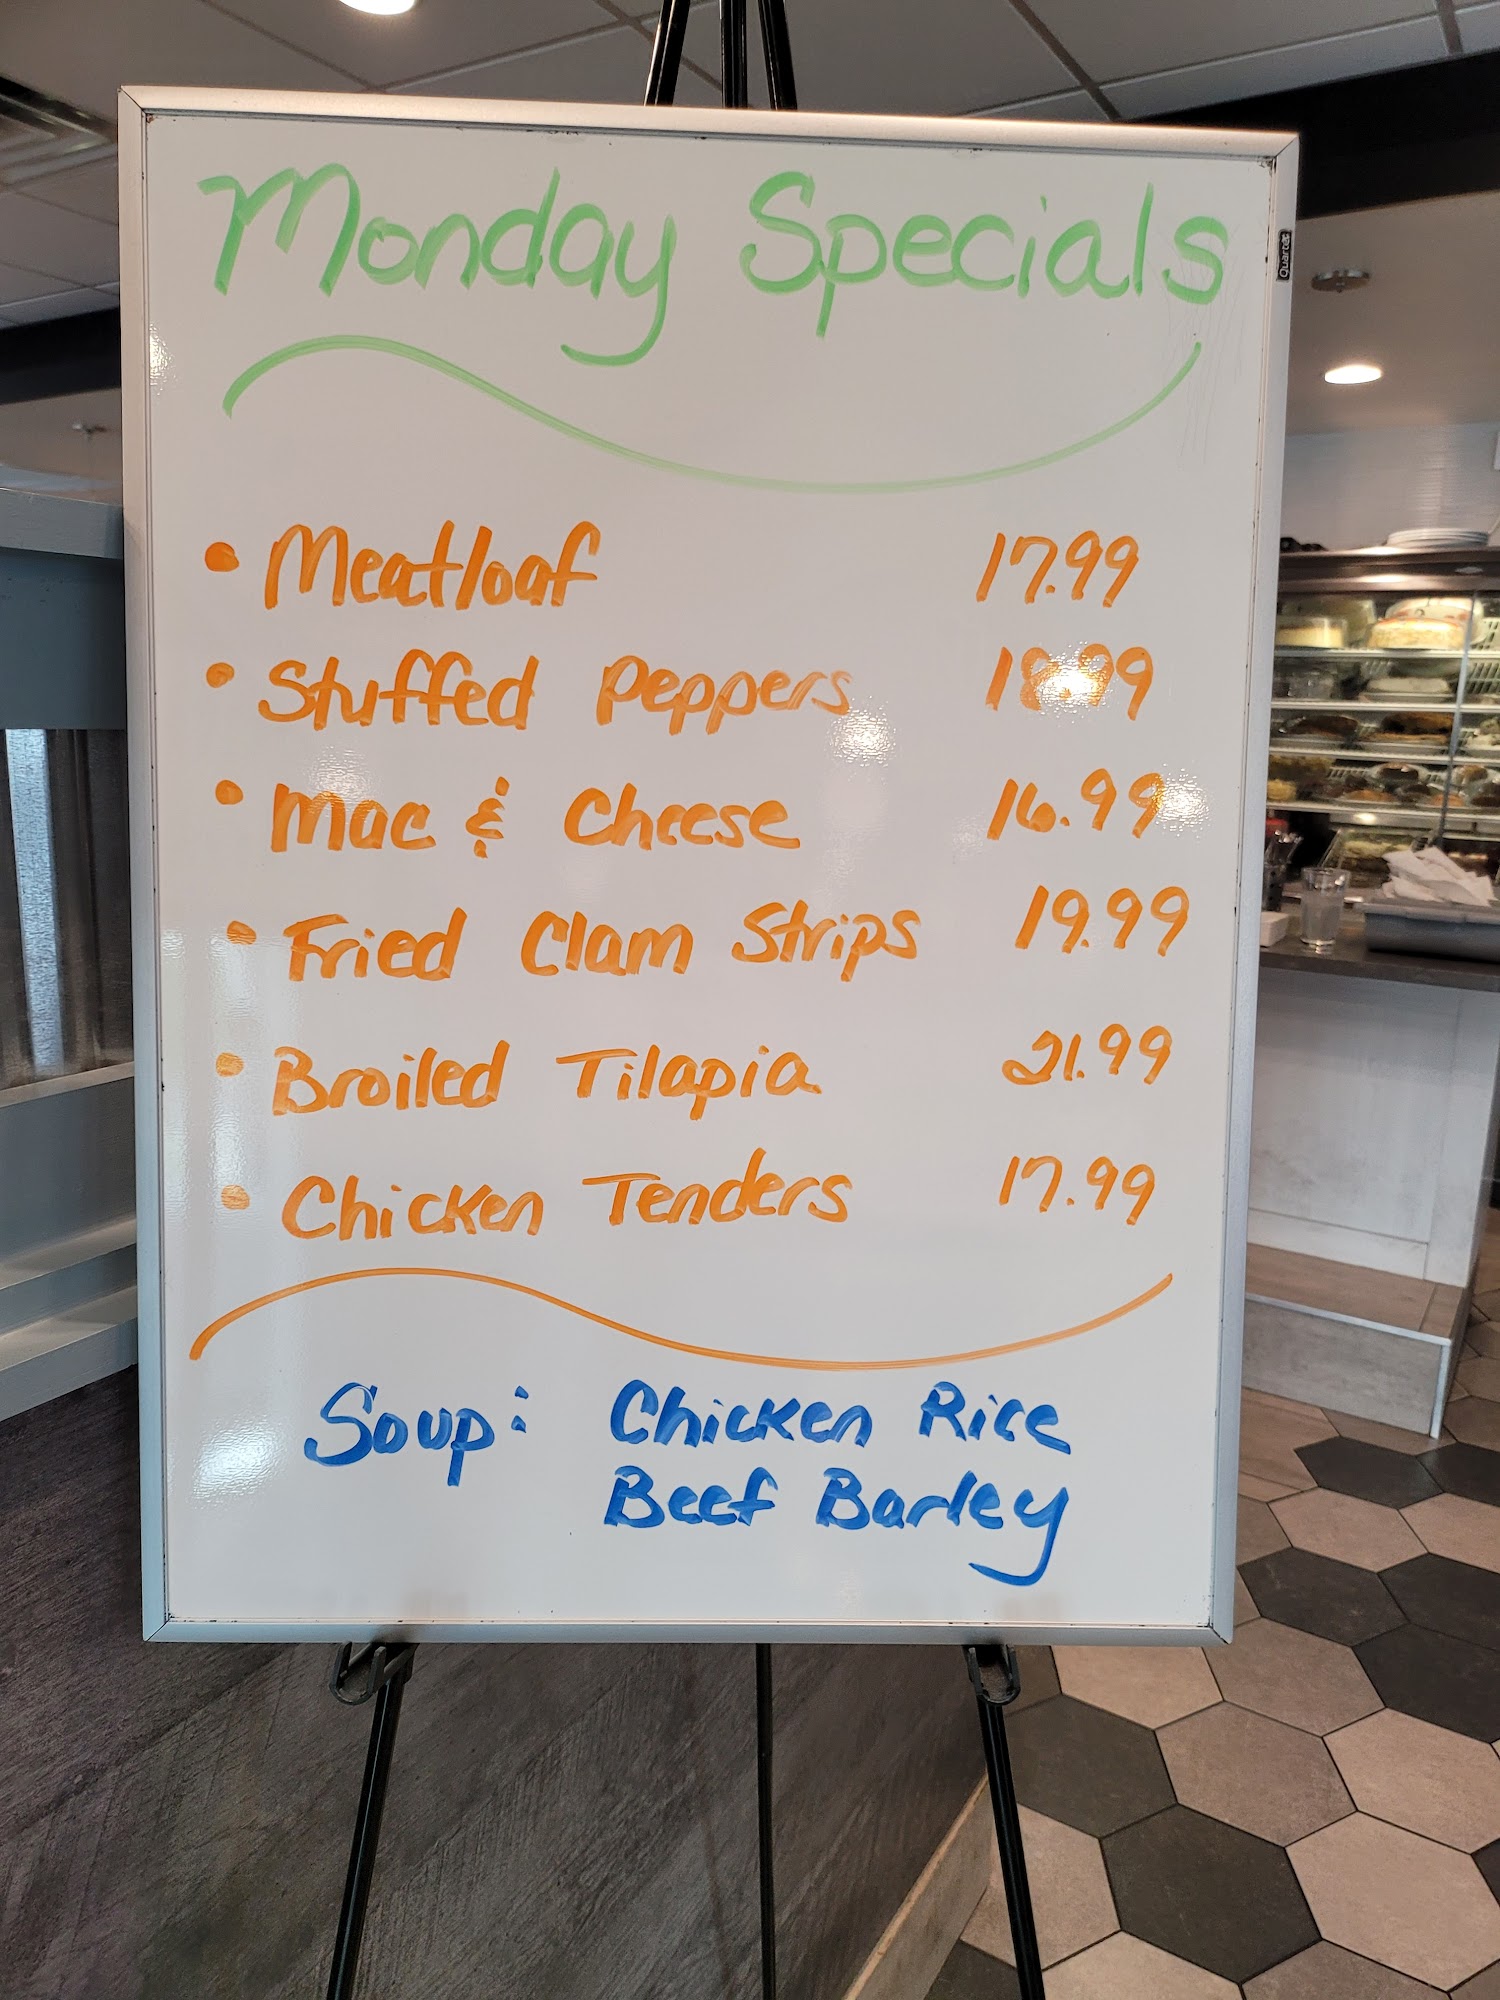 Monday Specials
Quartet
• Meatloaf 17.99
• Stuffed Peppers 18.99
• Mac & Cheese 16.99
• Fried Clam Strips 19.99
• Broiled Tilapia 21.99
• Chicken Tenders 17.99
Soup: Chicken Rice
Beef Barley